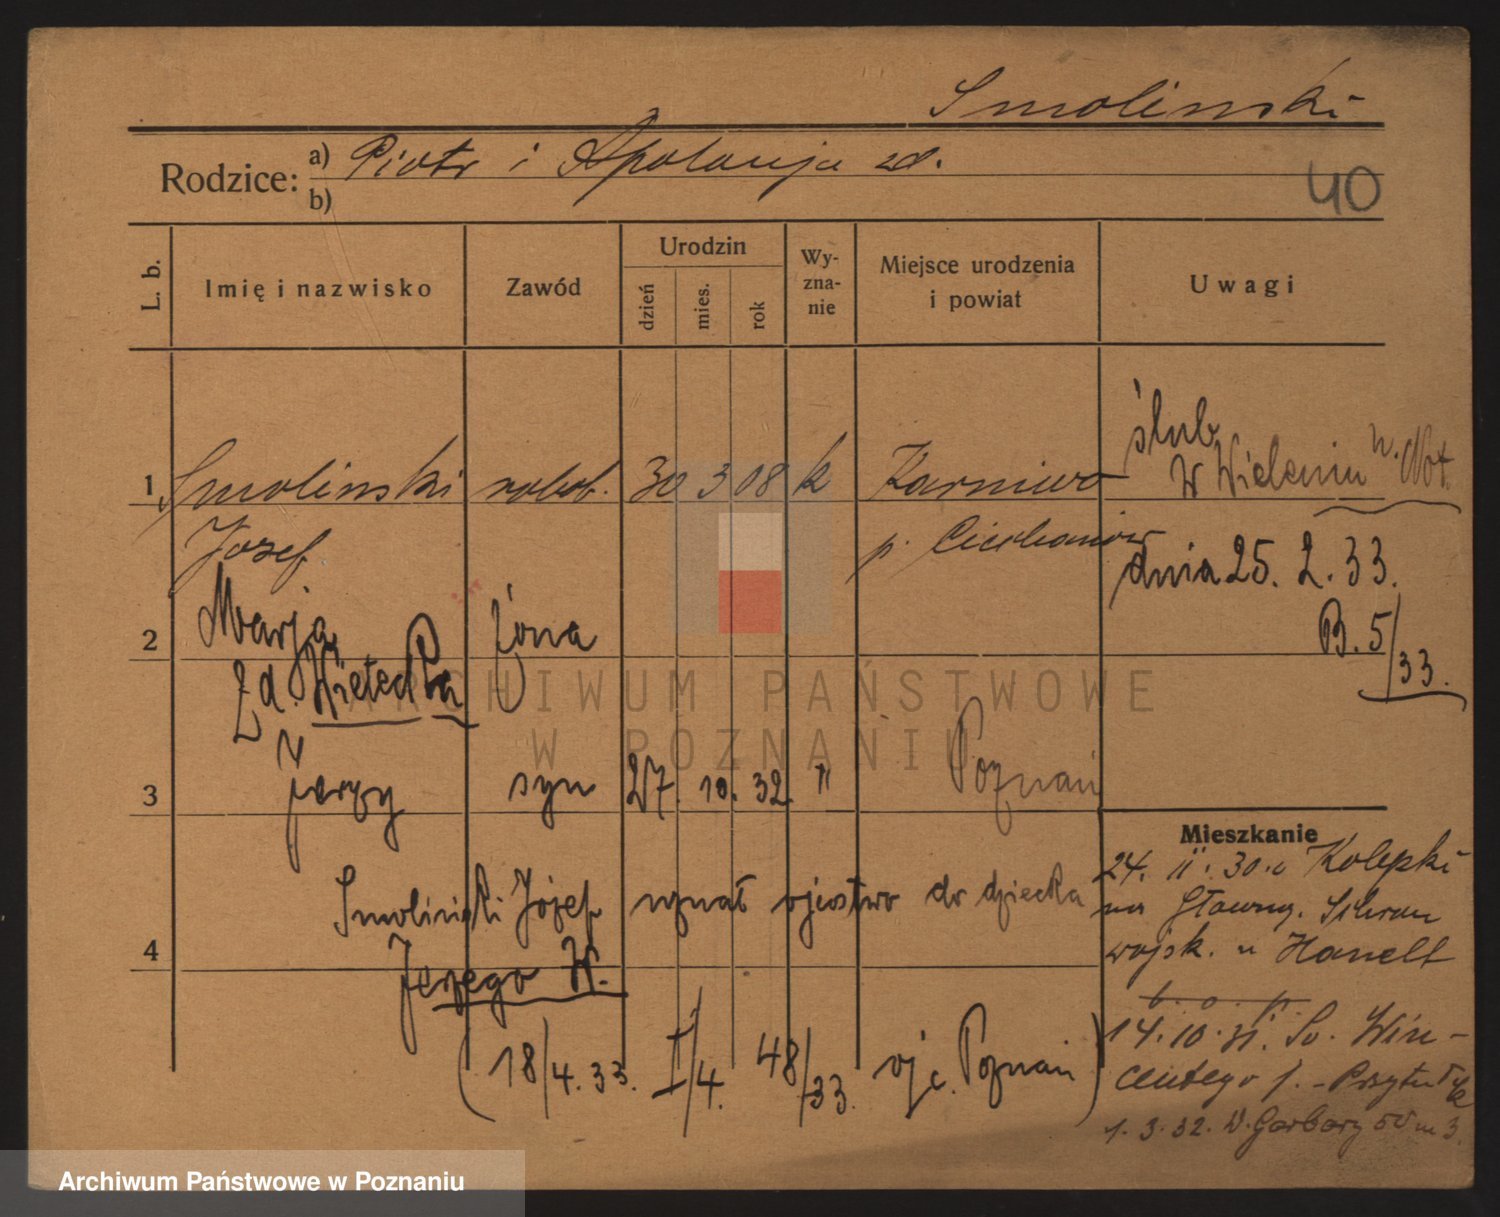 Smolinski
Rodzice: a) Piotr i Apolonja zd.
b)
40
L. b. Imię i nazwisko Zawód Urodzin dzień mies. rok Wy-zna-nie Miejsce urodzenia i powiat Uwagi
1 Smolinski robot. 30 3 08 k Karniewo
Józef p. Ciechanów
ślub
w Wieleniu n. Not.
dnia 25. 2. 33.
B. 5/33.
2 Marja żona
zd. Wietecka
3 Jerzy syn 27. 10. 32. " Poznań
Smolinski Józef uznał ojcostwo do dziecka
4 Jerzego W.
(18/4. 33. I/4. 48/33. Poznań)
Mieszkanie
24. 11. 30. Kolepki
na Główny. Schron
wojsk. u Hanelt
b. o. p.
14. 10. 31. Św. Win-
centego 1. - Przytułek
1. 3. 32. W. Garbary 50 m 3.
ARCHIWUM PAŃSTWOWE
W POZNANIU
Archiwum Państwowe w Poznaniu